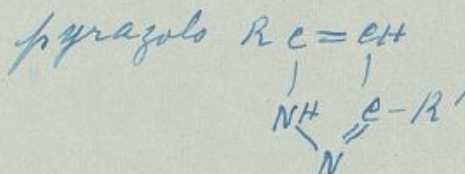 pyrazolo RC=CH
NH C-R'
N